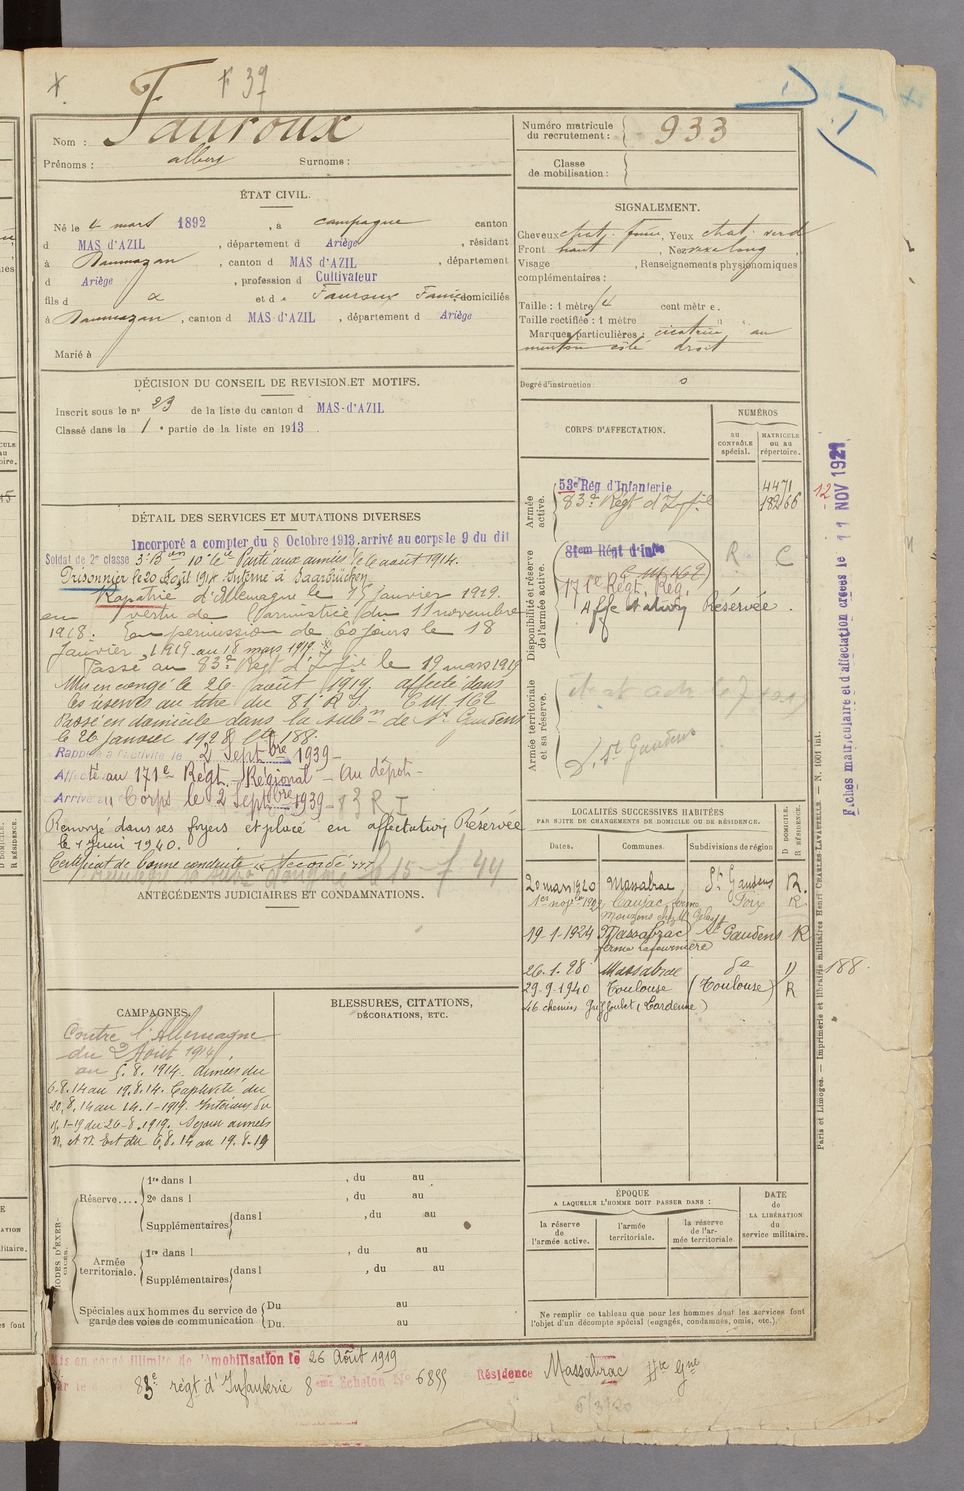 F 37
Nom : Fauroux
Prénoms : albert Surnoms :
Numéro matricule du recrutement : 933
Classe de mobilisation :
ÉTAT CIVIL.
Né le 4 mars 1892, à campagne canton
d MAS d'AZIL, département d Ariège, résidant
à Daumazan, canton d MAS d'AZIL, département
d Ariège, profession d Cultivateur
fils d et d Fauroux domiciliés
à Daumazan, canton d MAS-d'AZIL, département d Ariège
Marié à
SIGNALEMENT.
Cheveux chat. , Yeux chat. verd
Front haut, Nez long,
Visage , Renseignements physionomiques
complémentaires :
Taille : 1 mètre centimètre.
Taille rectifiée : 1 mètre " "
Marques particulières : cicatrice au
menton côté droit
Degré d'instruction :
DÉCISION DU CONSEIL DE REVISION ET MOTIFS.
Inscrit sous le n° 23 de la liste du canton d MAS-d'AZIL
Classé dans la 1e partie de la liste en 1913.
DÉTAIL DES SERVICES ET MUTATIONS DIVERSES
Incorporé a compter du 8 Octobre 1913 arrivé au corps le 9 du dit
Soldat de 2e classe Parti aux armées le 6 août 1914.
Prisonnier le 20 Août 1914 Interné à Saarbrücken
Rapatrié d'Allemagne le 15 janvier 1919.
en vertu de l'armistice du 11 novembre
1918. En permission de 60 jours le 18
Janvier 1919 au 18 mars 1919.
Passé au 83e Régt d'Infie le 19 mars 1919
Mis en congé le 26 août 1919, affecté dans
les réserves au titre du 81e R.I. CM 162
Passé en domicile dans la subon de St Gaudens
le 26 janvier 1928 188
Rappelé à l'activité le 2 Septbre 1939 -
Affecté au 171e Régt Régional - Au dépôt -
Arrivé au Corps le 2 Septbre 1939 - 83 R I
Renvoyé dans ses foyers et placé en affectation Réservée
le 1 juin 1940.
Certificat de bonne conduite « Accordé »
le 15-7 44
ANTÉCÉDENTS JUDICIAIRES ET CONDAMNATIONS.
CORPS D'AFFECTATION.
NUMÉROS
AU CONTRÔLE spécial.
MATRICULE ou au répertoire.
Armée active.
53e Rég d'Infanterie 4471
83e Régt d'Infie 18266
Disponibilité et réserve de l'armée active.
81em Régt d'infie R C
CM 162
171e Régt. Rég.
Affectation Réservée.
Armée territoriale et sa réserve.
St Gaudens
LOCALITÉS SUCCESSIVES HABITÉES
PAR SUITE DE CHANGEMENTS DE DOMICILE OU DE RÉSIDENCE.
Dates. Communes. Subdivisions de région
D DOMICILE. R RÉSIDENCE.
20 mars 1920 Massabrac St Gaudens R.
Foix R.
19-1-1924 Massabrac St Gaudens R
ferme
26.1.28 Massabrac do D 188.
29-9-1940 Toulouse (Toulouse) R
46 chemin (Cardenne)
CAMPAGNES.
Contre l'Allemagne
du 2 Août 1914
au 5.8.1914. Armées du
6.8.14 au 19.8.14. Captivité du
20.8.14 au 14.1-1919. Intérieur du
15.1-19 du 26-8.1919. Séjour armées
N. et N. Est du 6.8.14 au 19.8.19
BLESSURES, CITATIONS, DÉCORATIONS, ETC.
Réserve....
1re dans l , du au
2e dans l , du au
Supplémentaires dans l , du au
Armée territoriale.
1re dans l , du au
Supplémentaires dans l , du au
Spéciales aux hommes du service de garde des voies de communication
Du au
Du. au
ÉPOQUE
A LAQUELLE L'HOMME DOIT PASSER DANS :
la réserve de l'armée active.
l'armée territoriale.
la réserve de l'armée territoriale.
DATE de LA LIBÉRATION du service militaire.
Ne remplir ce tableau que pour les hommes dont les services font
l'objet d'un décompte spécial (engagés, condamnés, omis, etc.).
Mis en congé illimité de démobilisation le 26 Août 1919
83e régt d'Infanterie 8eme Echelon No 6855 Résidence Massabrac Hte Gne
6/3/20
Fiches matriculaire et d'affectation créées le 11 NOV 1921
12
Paris et Limoges. — Imprimerie et librairie militaires Henri CHARLES-LAVAUZELLE. — N. 1001 int.